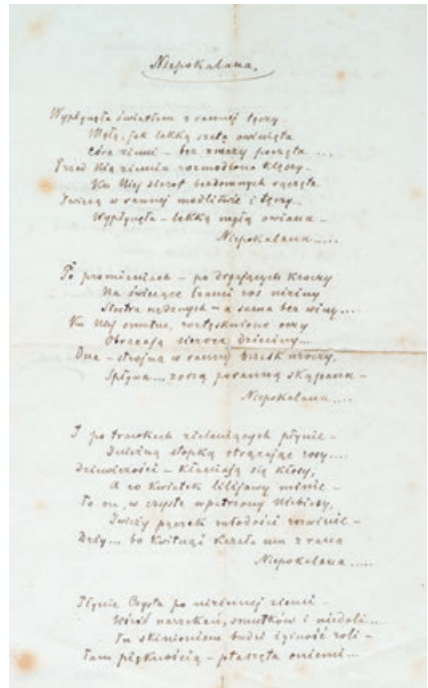 Niepokalana.
Wypłynęła światłem z rannej tęczy
Mgłą, jak lekką szatą owinięta
Córa ziemi – bez zmazy poczęta ....
Przed Nią ziemia rozmodlona klęczy –
Ku Niej sierot bezdomnych rączęta
w rannej modlitwie i tęczy –
Wypłynęła – lekką mgłą owiana –
Niepokalana .....
Po promieniach – po drgających kroczy
Na świecące łzami ros niziny
Siostra nędznych – a sama bez winy ...
Ku Niej smutne, roztęsknione oczy
Obracają sieroce dzieciny ...
Ona – strojna w ranny brzask uroczy,
Spływa ... rosą poranną skąpana –
Niepokalana ....
I po trawkach zieleniących płynie –
stopką strącając rosy ....
Dziewiczości – kłaniają się kłosy,
A co kwiatek lilijowy minie –
To on, w czyste wpatrzony Niebiosy,
Świeży pączek młodości rozwinie –
Drży ... bo kwitnąć kazała mu z rana
Niepokalana .....
Płynie Czysta po nizinnej ziemi –
Wśród narzekań, smutków i niedoli ...
Tu skinieniem budzi żyzność roli –
Tam pięknością – ptaszęta oniemi ...